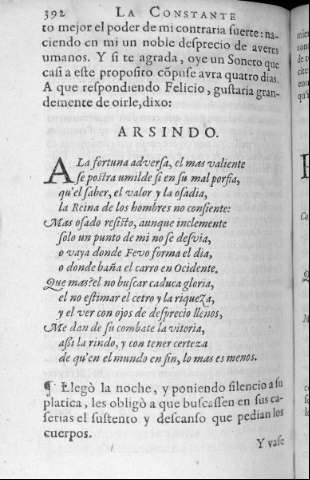 392 LA CONSTANTE
to mejor el poder de mi contraria suerte: na-
ciendo en mi un noble desprecio de averes
umanos. Y si te agrada, oye un Soneto que
casi a este proposito cõpuse avra quatro dias.
A que respondiendo Felicio, gustaria gran-
demente de oirle, dixo:
ARSINDO.
A La fortuna adversa, el mas valiente
se postra umilde si en su mal porfia,
qu'el saber, el valor y la osadia,
la Reina de los hombres no consiente:
Mas osado resisto, aunque inclemente
solo un punto de mi no se desvia,
o vaya donde Fevo forma el dia,
o donde baña el carro en Ocidente.
Que mas? el no buscar caduca gloria,
el no estimar el cetro y la riqueza,
y el ver con ojos de desprecio llenos,
Me dan de su combate la vitoria,
assi la rindo, y con tener certeza
de qu'en el mundo en fin, lo mas es menos.
¶ Llegò la noche, y poniendo silencio a su
platica, les obligò a que buscassen en sus ca-
serias el sustento y descanso que pedian los
cuerpos.
Y vase